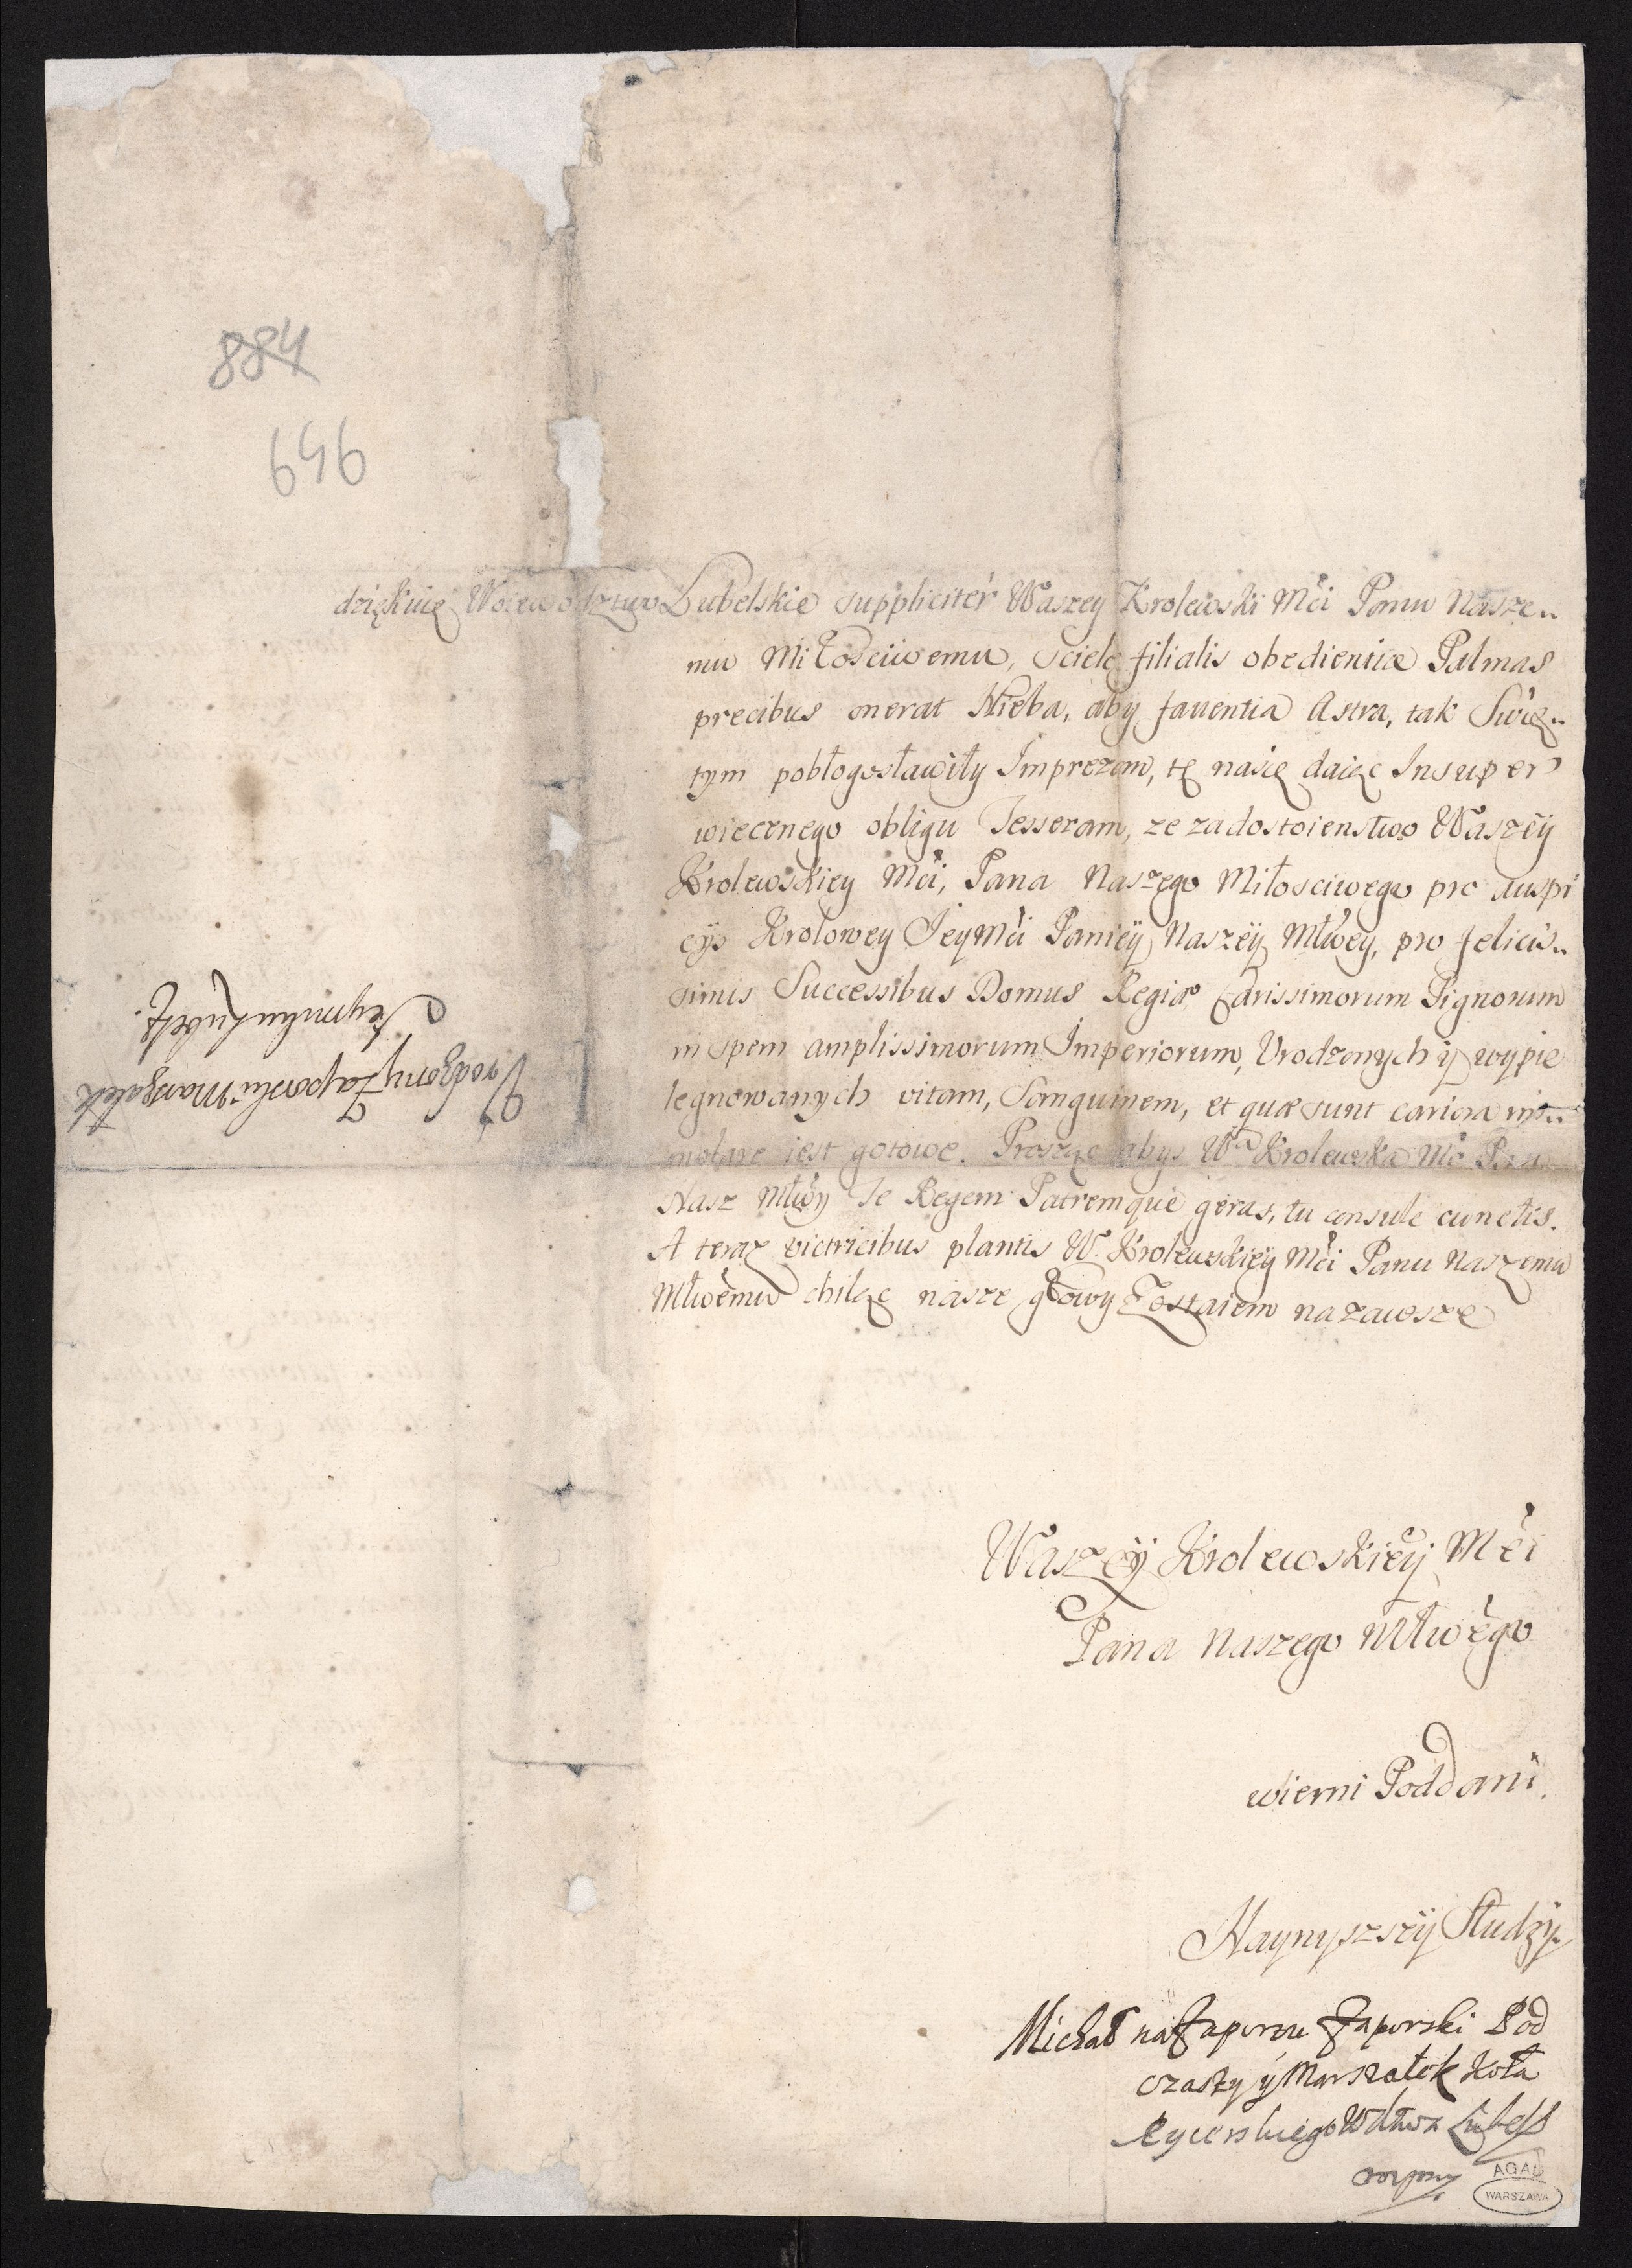 884
646
dziękuię Woiewodztwo Lubelskie suppliciter Waszey Krolewski Mći Panu Nasze..
mu Miłosciwemu, sciele filialis obedientiæ Palmas
precibus onerat Nieba, aby faventia Astra, tak Swię..
tym pobłogosławiły Imprezom, tę nasię daiąc Insuper
wiecznego obligu Tesseram, ze za dostoienstwo Waszey
Krolewskiey Mći, Pana Naszego Miłosciwego pro auspi
cys Krolowey Jey Mći Paniey Naszey Młwey, pro felicis..
simis Successibus Domus Regiæ Carissimorum Pignorum
in spem amplissimorum Imperiorum, Urodzonych y wypie
legnowanych vitam, Sanguinem, et quæ sunt cariora im..
molare iest gotowe. Prosząc abys Wa Krolewska Mć Pan
Nasz Młwy Te Regem Patremque geras, tu consule cunctis.
A teraz victricibus plantis W. Krolewskiey Mći Panu Naszemu
Młwemu chiląc nasze głowy Zostaiem na zawsze
Waszey Krolewskiey Mći
Pana Naszego Młwego
wierni Poddani.
Naynyszszy Słudzy
Michał na Zaporzu Zaporski Pod
czaszy y Marszałek Koła
Rycerskiego Wdztwa Lubels
mpp
Urodzony Zaporski Marszałek
Seymiku Lubels.
AGAD
WARSZAWA